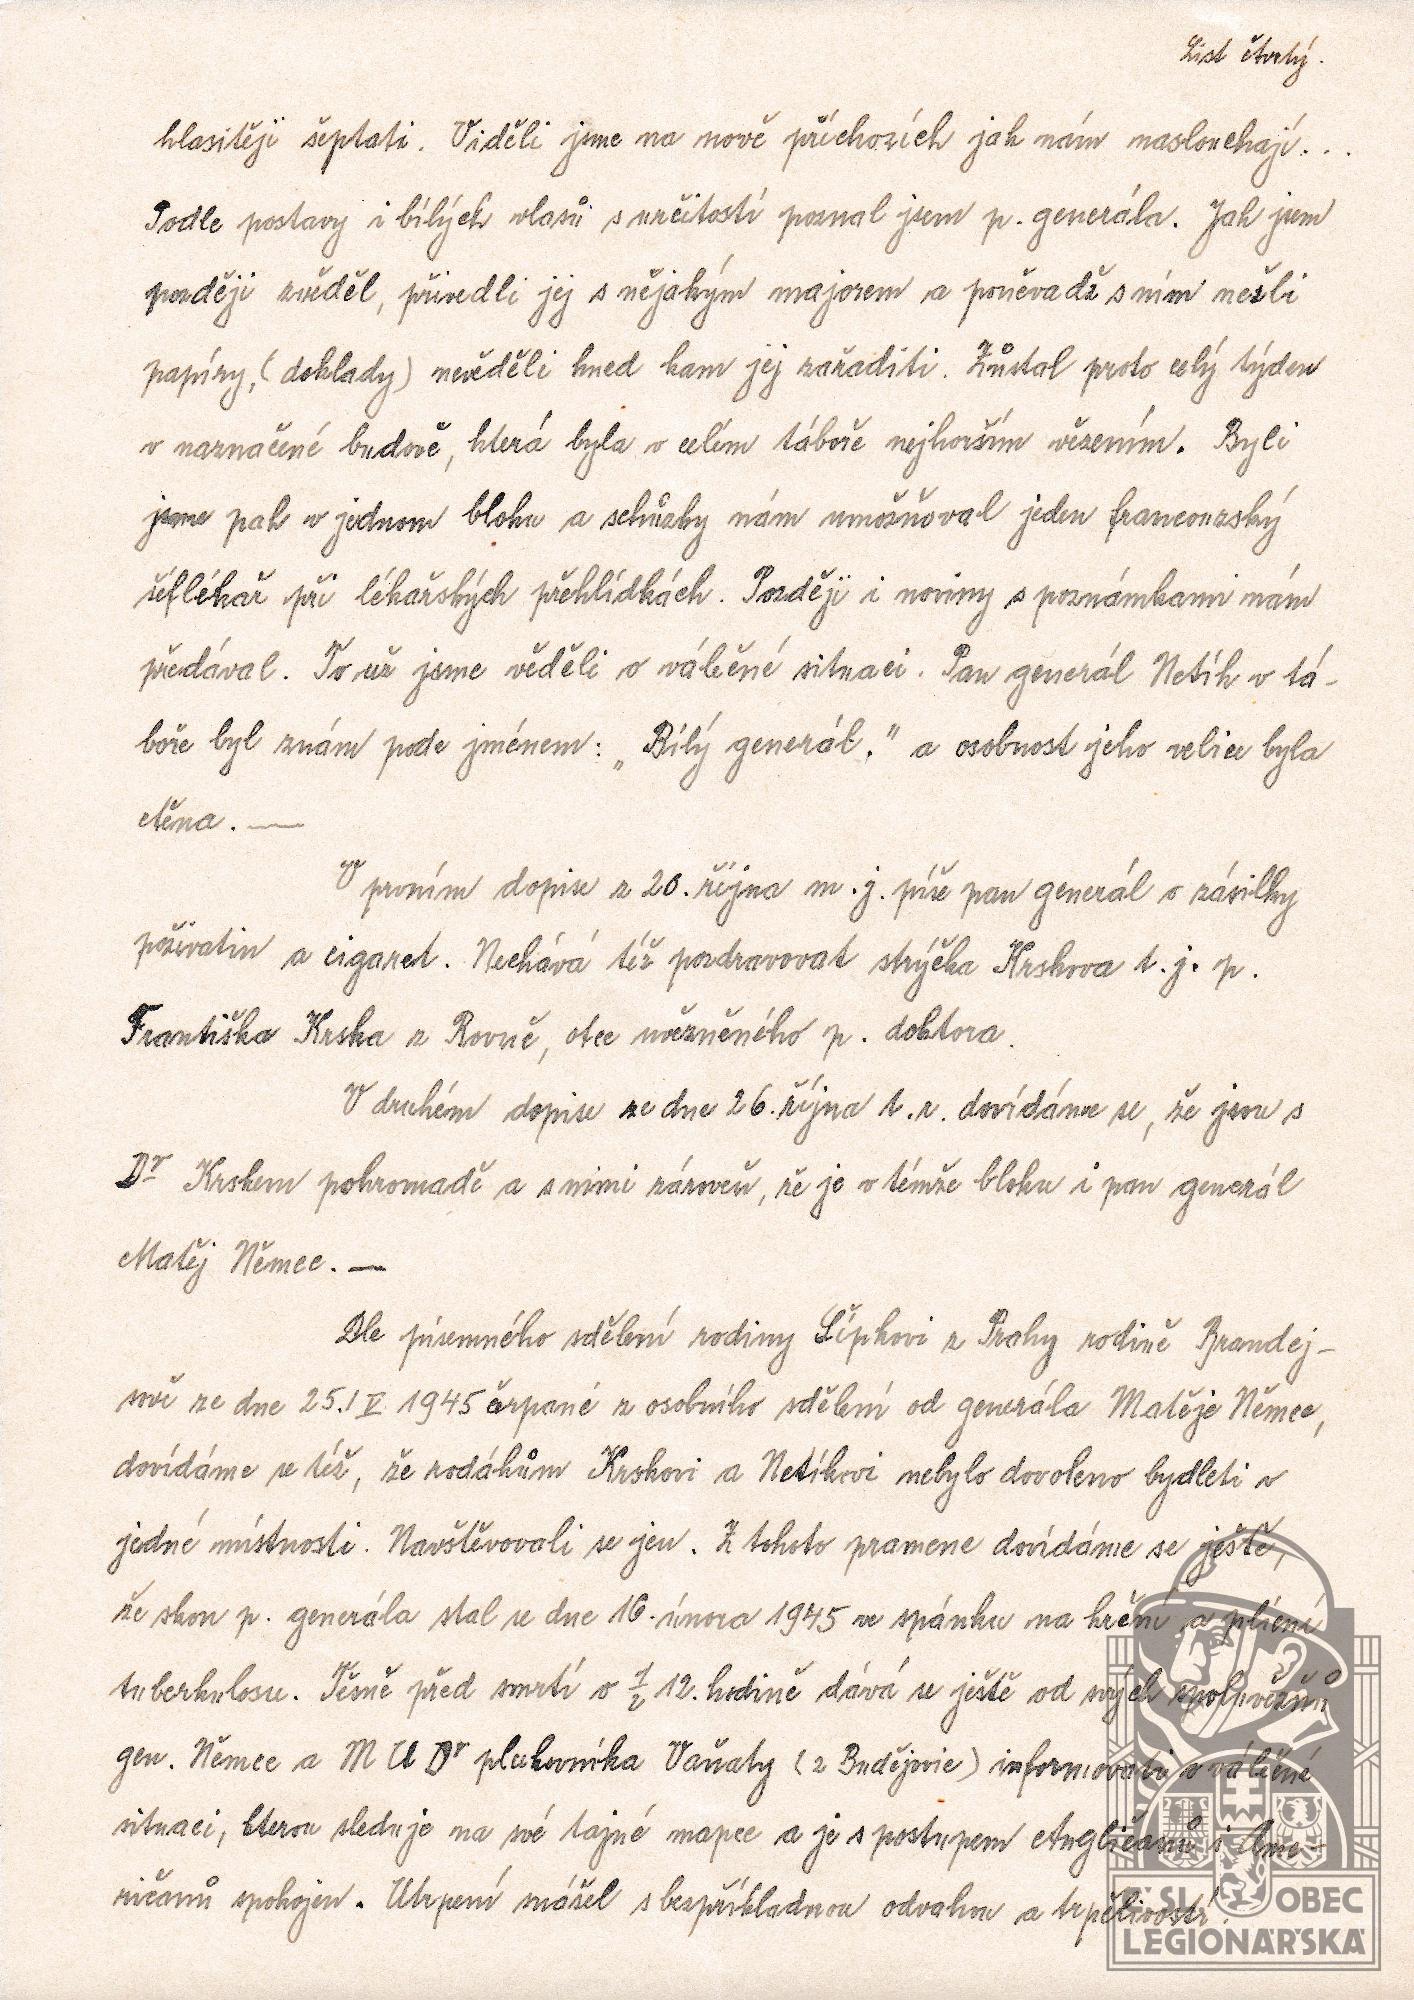 List čtvrtý.
hlasitěji šeptati. Viděli jsme na nově příchozích jak nám naslouchají...
Podle postavy i bílých vlasů s určitostí poznal jsem p. generála. Jak jsem
později zvěděl, přivedli jej s nějakým majorem a poněvadž s ním nešli
papíry, (doklady) nevěděli hned kam jej zařaditi. Zůstal proto celý týden
v naznačené budově, která byla v celém táboře nejhorším vězením. Byli
jsme pak v jednom bloku a schůzky nám umožňoval jeden francouzský
šéflékař při lékařských přehlídkách. Později i noviny s poznámkami nám
předával. To už jsme věděli o válečné situaci. Pan generál Netík v tá-
boře byl znám pode jménem: „Bílý generál." a osobnost jeho velice byla
ctěna. —
V prvním dopise z 20. října m. j. píše pan generál o zásilky
poživatin a cigaret. Nechává též pozdravovat strýčka Krskova t. j. p.
Františka Krska z Rovně, otce uvězněného p. doktora.
V druhém dopise ze dne 26. října t. r. dovídáme se, že jsou s
Dr Krskem pohromadě a s nimi zároveň, že je v témže bloku i pan generál
Matěj Němec. —
Dle písemného sdělení rodiny Šípkovi z Prahy rodině Brandej-
sově ze dne 25. IV 1945 čerpané z osobního sdělení od generála Matěje Němce,
dovídáme se též, že rodákům Krskovi a Netíkovi nebylo dovoleno bydleti v
jedné místnosti. Navštěvovali se jen. Z tohoto pramene dovídáme se ještě,
že skon p. generála stal se dne 16. února 1945 ve spánku na krční a plicní
tuberkulosu. Těsně před smrtí o ½ 12. hodině dává se ještě od svých spoluvězňů
gen. Němce a MUDr plukovníka Vaňaty (z Budějovic) informovati o válečné
situaci, kterou sleduje na své tajné mapce a je s postupem Angličanů i Ame-
ričanů spokojen. Utrpení snášel s bezpříkladnou odvahou a trpělivostí.
ČsOL
OBEC
LEGIONÁŘSKÁ